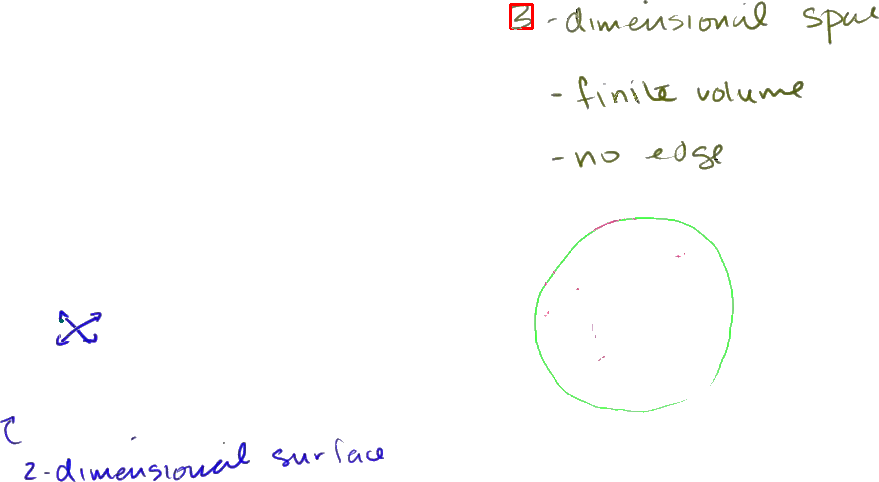 3-dimensional spac
- finite volume
- no edge
2-dimensional surface